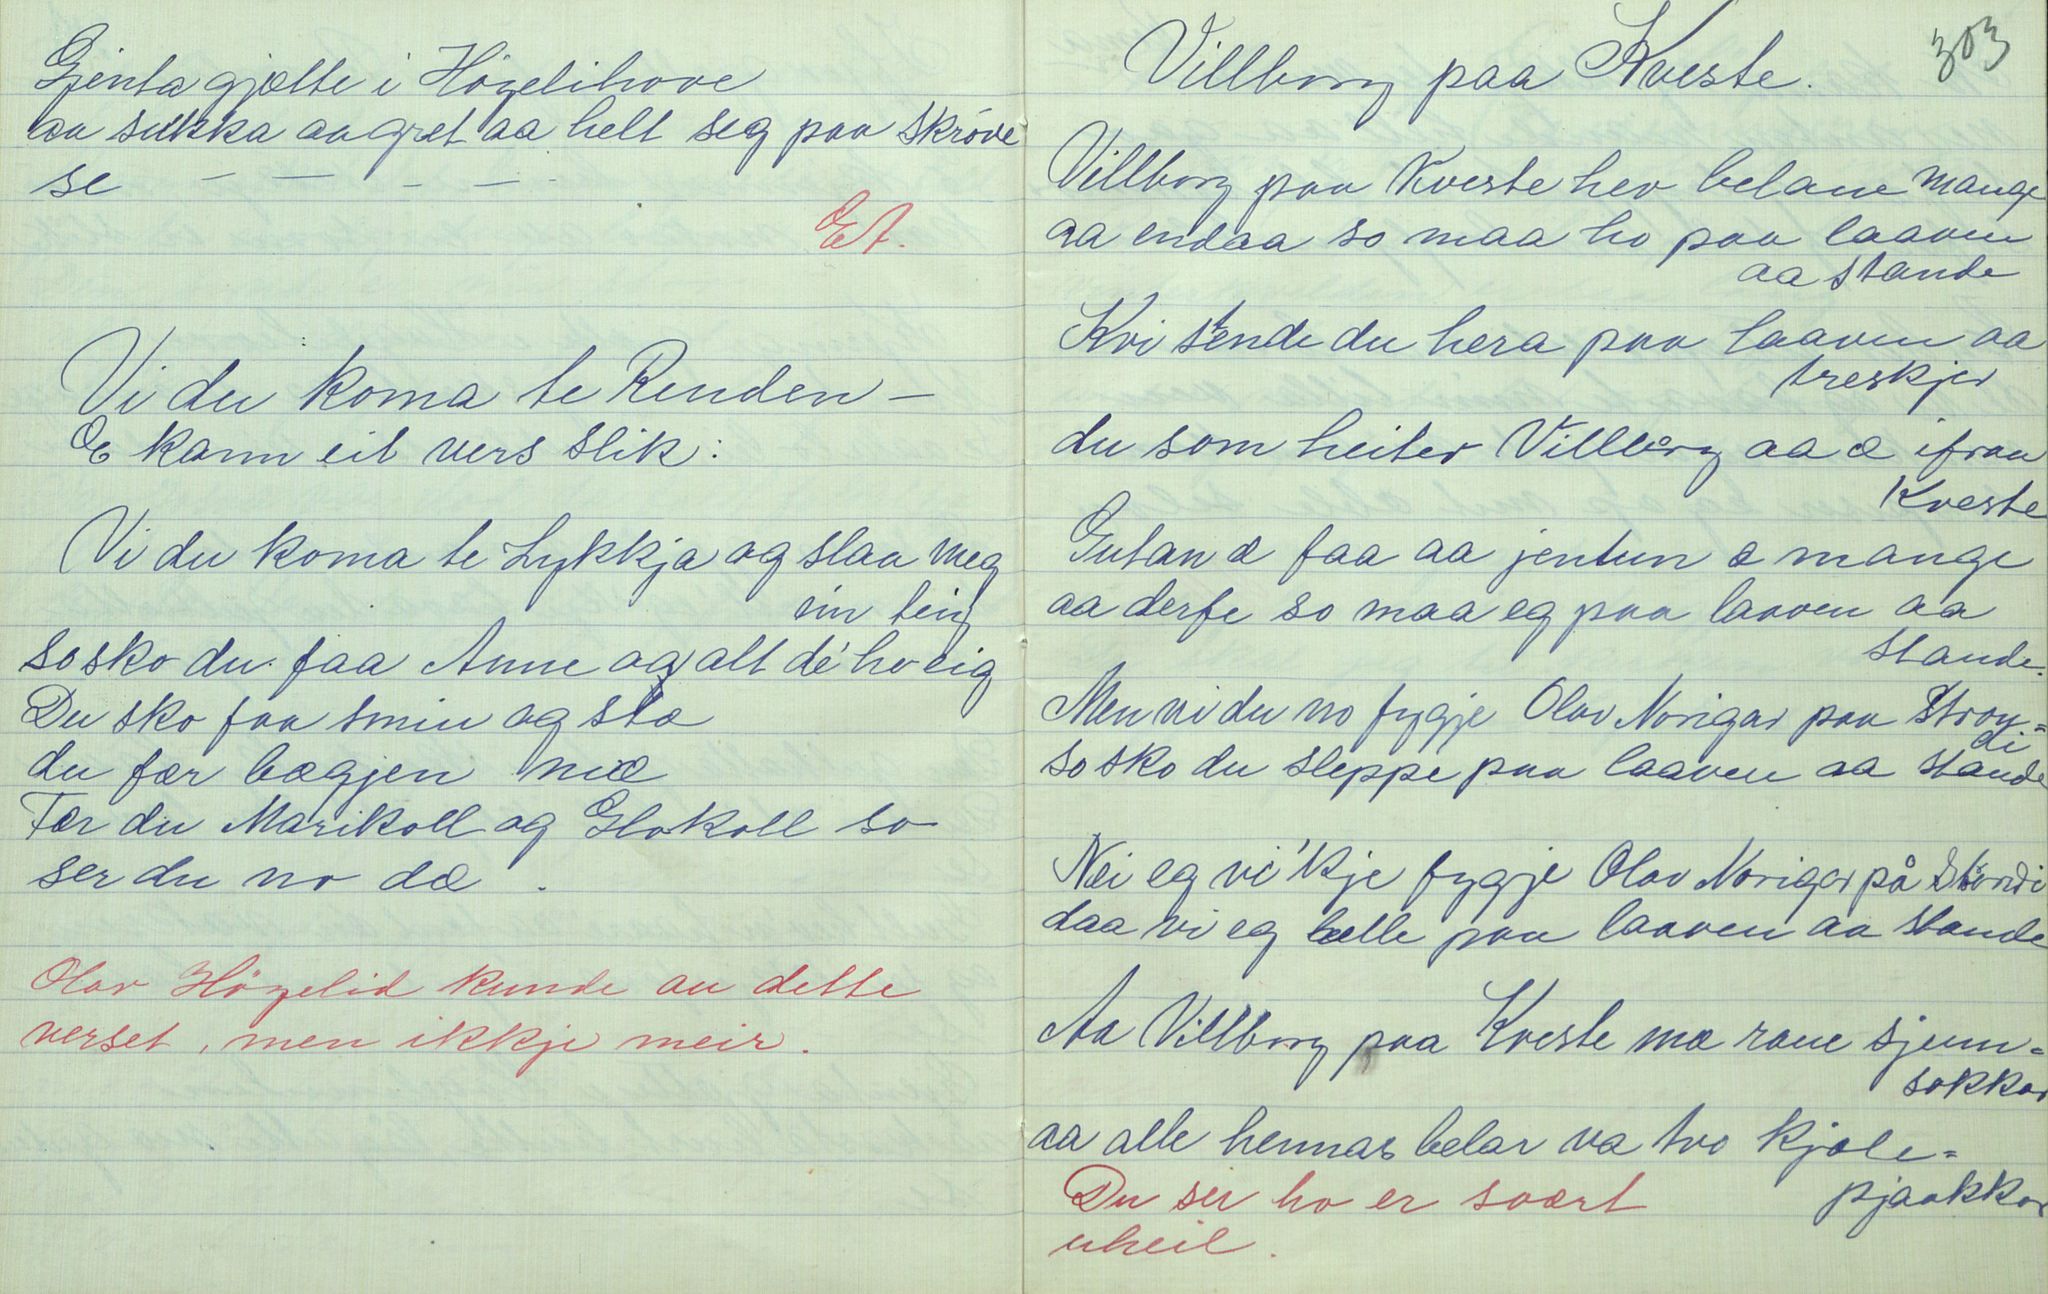 Gjenta gjætte i Högelihove
aa sukka aa græt aa helt seg paa skröve
se — — — — —
Et.
Vi du koma te Renden —
E kann eit vers slik:
Vi du koma te Lykkja og slaa meg
ein teig
so sko du faa Anne og alt de' ho eig
Du sko faa smiu og sta
du fær bægjen mæ
Fær du Marikoll og Glokoll so
ser du no dæ.
Olav Högelid kunde au dette
verset, men ikkje meir.
303
Villborg paa Kveste.
Villborg paa Kveste hev belane mange
aa endaa so maa ho paa laaven
aa stande
Kvi stende du hera paa laaven aa
treskjer
du som heiter Villborg aa æ ifraa
Kveste
Gutan æ faa aa jentun æ mange
aa derfe so maa eg paa laaven aa
stande.
Men vi du no fygje Olav Norigar paa Stron=
di
so sko du sleppe paa laaven aa stande
Nei eg vi 'kje fygje Olav Norigar på Strondi
daa vi eg helle paa laaven aa stande
Aa Villborg paa Kveste mæ raue sjenn=
sokkar
aa alle hennas belar va tvo kjole=
pjaakkar
Du ser ho er svært
uheil.